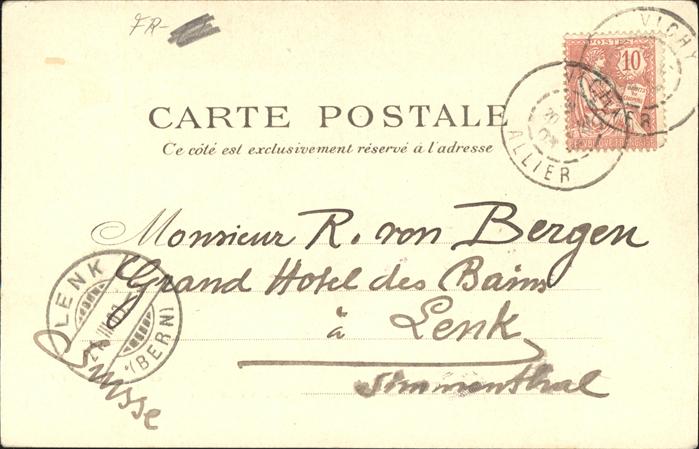 FR-
POSTES
10
VICHY
VICHY
ALLIER
ALLIER
CARTE POSTALE
Ce côté est exclusivement réservé à l'adresse
Monsieur R. von Bergen
Grand Hotel des Bains
à Lenk
Simmenthal
Suisse
LENK
(BERN)